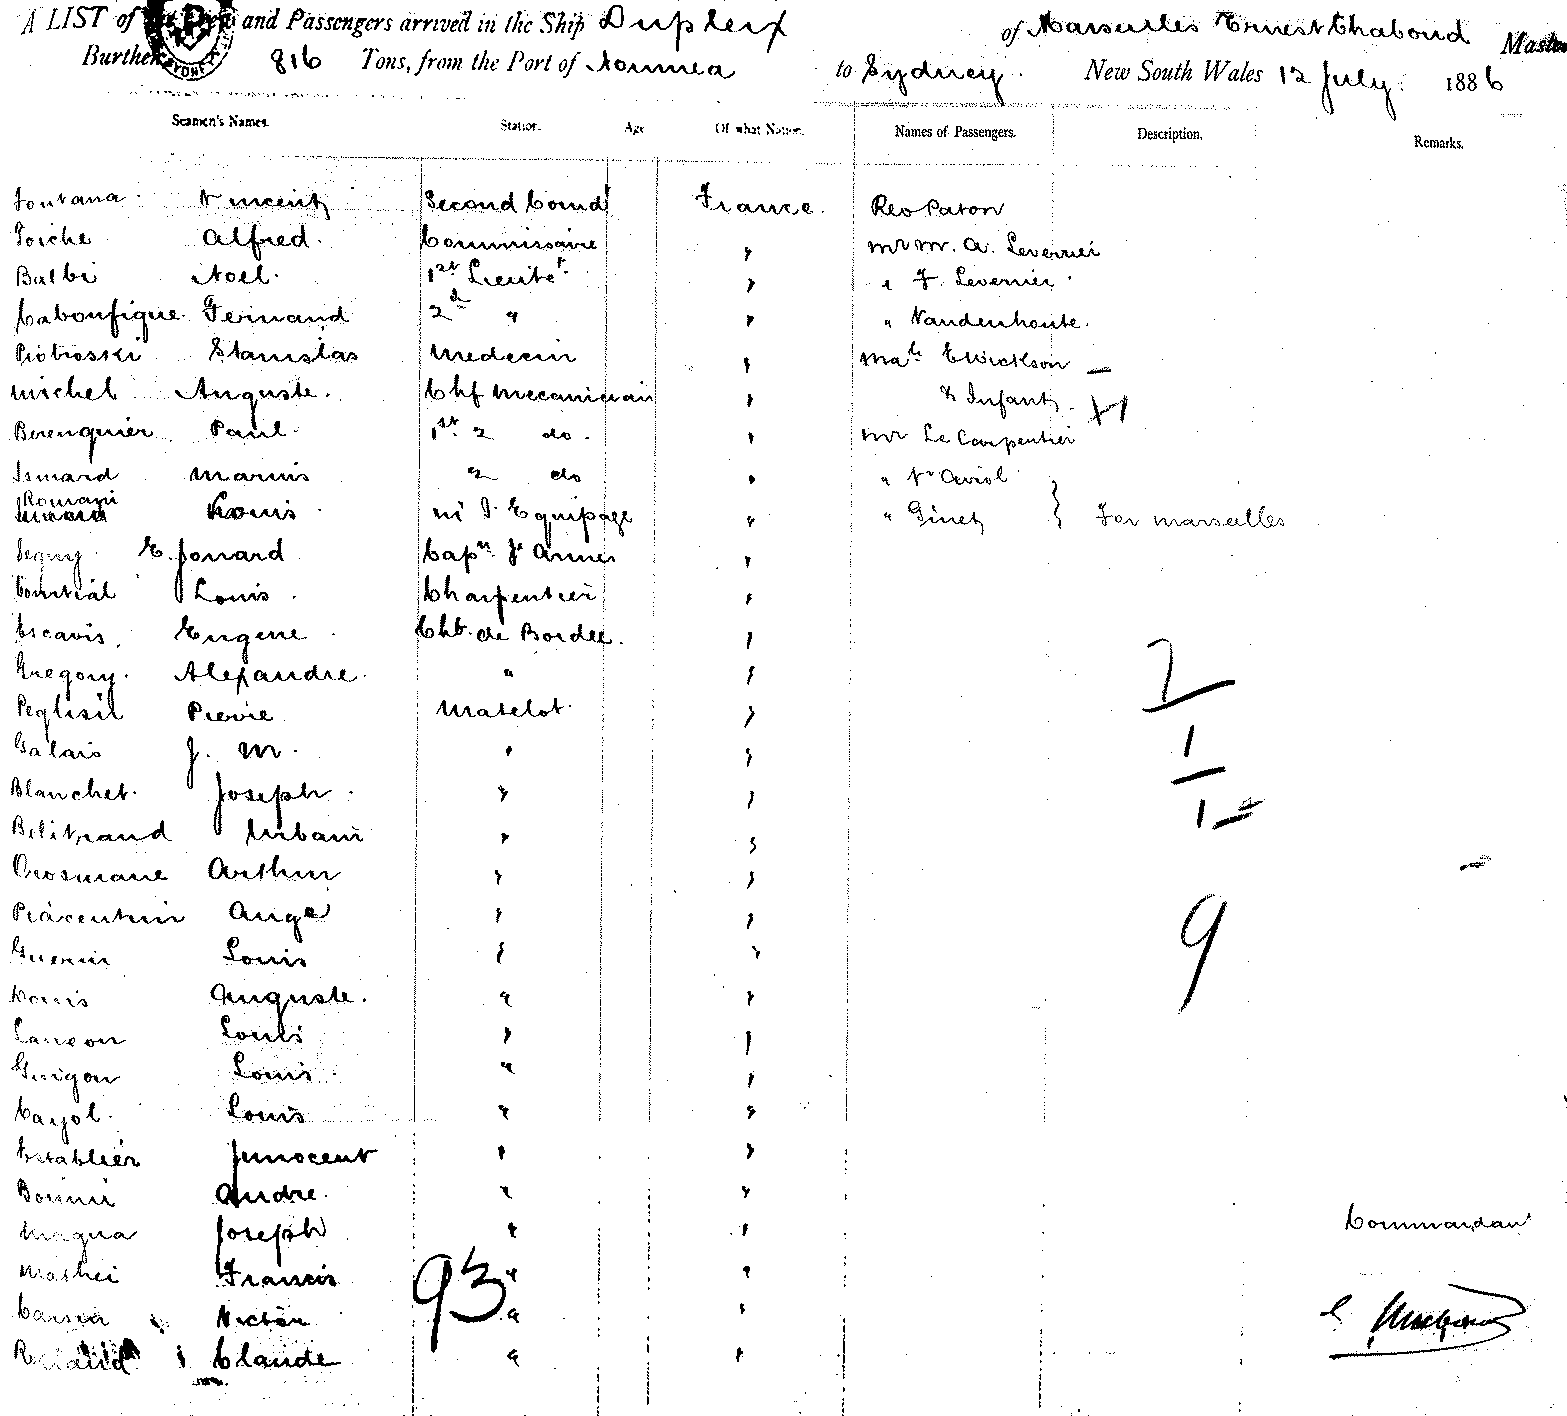 A LIST of and Passengers arrived in the Ship Dupleix of Marseilles Ernest Chabond Master
Burthen 816 Tons, from the Port of Noumea to Sydney. New South Wales 12 July. 1886
SYDNEY
Seamen's Names. Station. Age Of what Nation. Names of Passengers. Description. Remarks.
Fontana Vincent Second Comd France. Rev Paton
Alfred. Commissaire " Mr Mr. A. Leverrier
Balbi Noel. 1st Lieutet " " F. Leverrier
Cabonfigue Fernand 2d " " " Vandenhoute.
Piotroski Stanislas Medecin " Erickson —
Michel Auguste. Chf Mecanician " & Infant
Berenquier Paul. 1st 2 do. " Mr Le Carpentier
Ismard Marius 2 do " " Aviol
Romani Louis " " Ginet } For Marseilles
E. Jouard Capn d'Armes "
Louis. Charpentier "
Escavis. Eugene. de Bordee. "
Gregory. Alexandre. " "
Pierre Matelot "
Galais J. M. " "
Blanchet. Joseph. " "
Urbain " "
Arthur " "
Piacentini Ange " "
Guerin Louis " "
Auguste. " "
Louis " "
Guigou Louis. " "
Cayol. Louis " "
Establier Innocent " "
Andre. " "
Joseph " "
Mathei Francis " "
Victor " "
Claude " "
7
1
1
9
93
Commandant